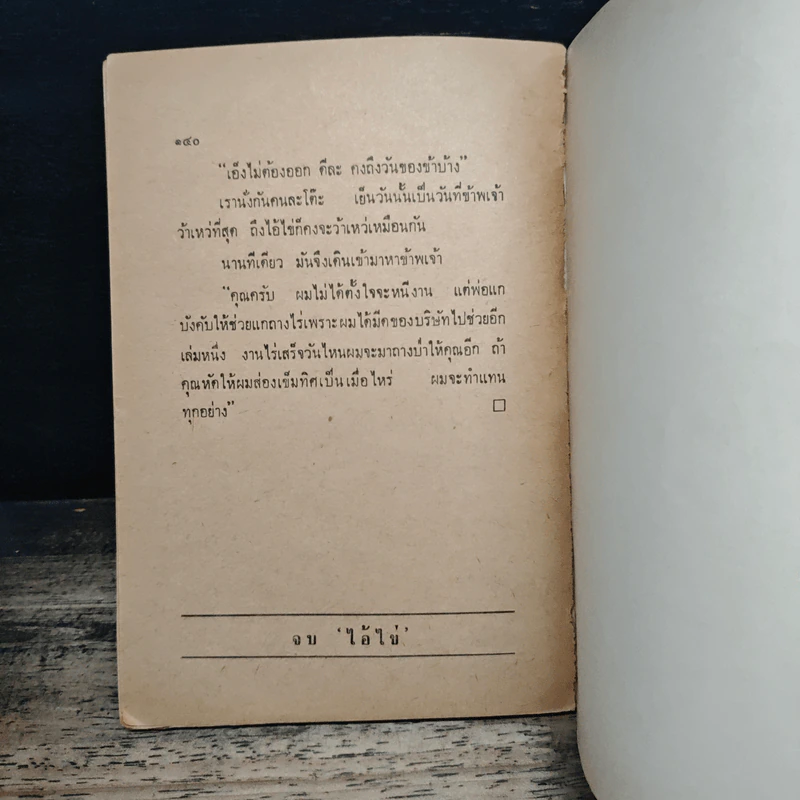 ๑๔๐
“เอ็งไม่ต้องออก ดีละ คงถึงวันของข้าบ้าง”
เรานั่งกันคนละโต๊ะ เย็นวันนั้นเป็นวันที่ข้าพเจ้า
ว้าเหว่ที่สุด ถึงไอ้ไข่ก็คงจะว้าเหว่เหมือนกัน
นานทีเดียว มันจึงเดินเข้ามาหาข้าพเจ้า
“คุณครับ ผมไม่ได้ตั้งใจจะหนีงาน แต่พ่อแก
บังคับให้ช่วยแกถางไร่เพราะผมได้มีดของบริษัทไปช่วยอีก
เล่มหนึ่ง งานไร่เสร็จวันไหนผมจะมาถางป่าให้คุณอีก ถ้า
คุณหัดให้ผมส่องเข็มทิศเป็นเมื่อไหร่ ผมจะทำแทน
ทุกอย่าง”
จบ ‘ไอ้ไข่’